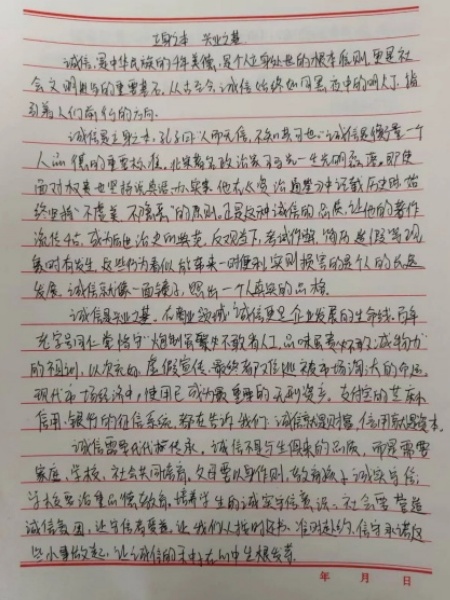 立身之本 兴业之基
诚信,是中华民族的传统美德,是个人立身处世的根本准则,更是社
会文明进步的重要基石。从古至今,诚信始终如同黑夜中的明灯,指
引着人们前行的方向。
诚信是立身之本,孔子曰"人而无信,不知其可也"诚信是衡量一个
人品德的重要标准。北宋著名政治家司马光一生光明磊落,即使
面对权贵也坚持说真话、办实事,他在《资治通鉴》中记载历史时,始
终坚持"不虚美、不隐恶"的原则。正是这种诚信的品质,让他的著作
流传千古,成为后世治史的典范。反观当下,考试作弊、简历造假等现
象时有发生,这些行为看似能带来一时便利,实则损害的是个人的长远
发展。诚信就像一面镜子,照出一个人真实的品格。
诚信是兴业之基。在商业领域,诚信更是企业发展的生命线。百年
老字号同仁堂恪守"炮制虽繁必不敢省人工,品味虽贵必不敢减物力"
的古训,以次充好、虚假宣传,最终都难逃被市场淘汰的命运。
现代市场经济中,信用已成为最重要的无形资产,支付宝的芝麻
信用、银行的征信系统,都在告诉我们:诚信就是财富,信用就是资本。
诚信需要代代相传承。诚信不是与生俱来的品质,而是需要
家庭、学校、社会共同培育。父母要以身作则,教育孩子诚实守信;
学校要注重品德教育,培养学生的诚实守信意识;社会要营造
诚信氛围,让守信者受益。让我们从按时还书、准时赴约、信守承诺这
些小事做起,让诚信的种子在心中生根发芽。
年 月 日